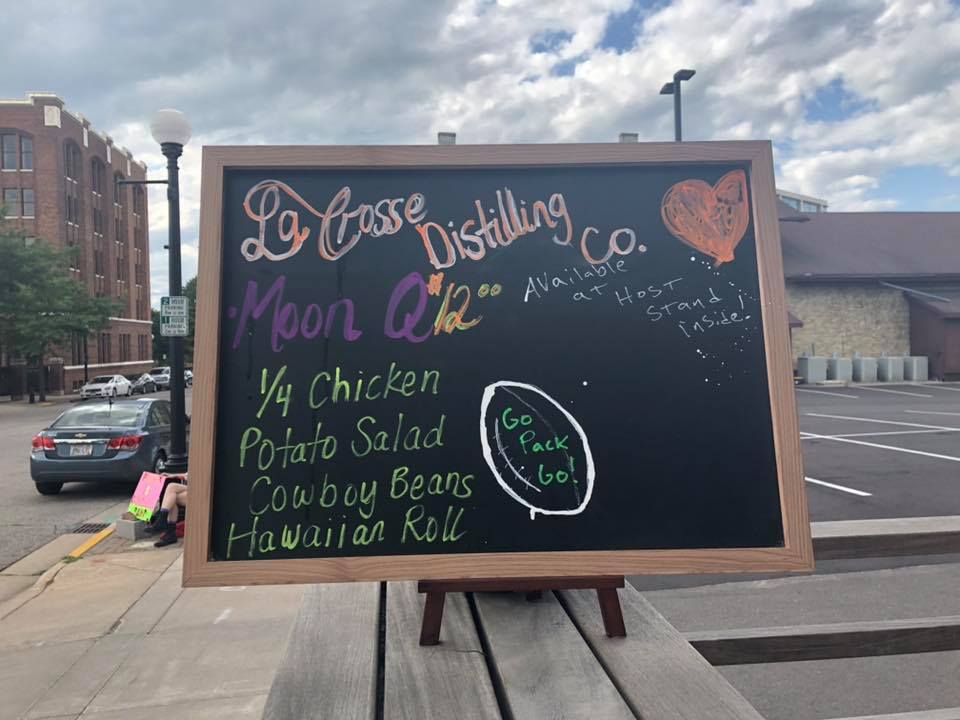 La Crosse Distilling Co.
Moon Q $12.00
Available
at Host
Stand
inside!
1/4 Chicken
Potato Salad
Cowboy Beans
Hawaiian Roll
Go
Pack
Go!
2 HOUR
PARKING
1 HOUR
PARKING